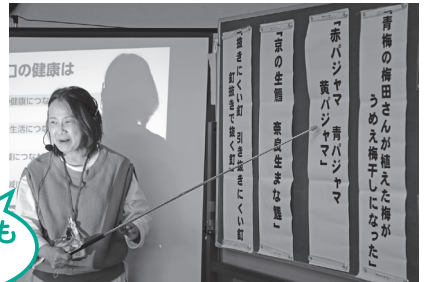 口の健康は
健康につな
生活につな
につな
「青梅の梅田さんが植えた梅が
うめえ梅干しになった」
「赤パジャマ 青パジャマ
黄パジャマ」
「京の生鱈 奈良生まな鰹」
「抜きにくい釘 引き抜きにくい釘
釘抜きで抜く釘」
も